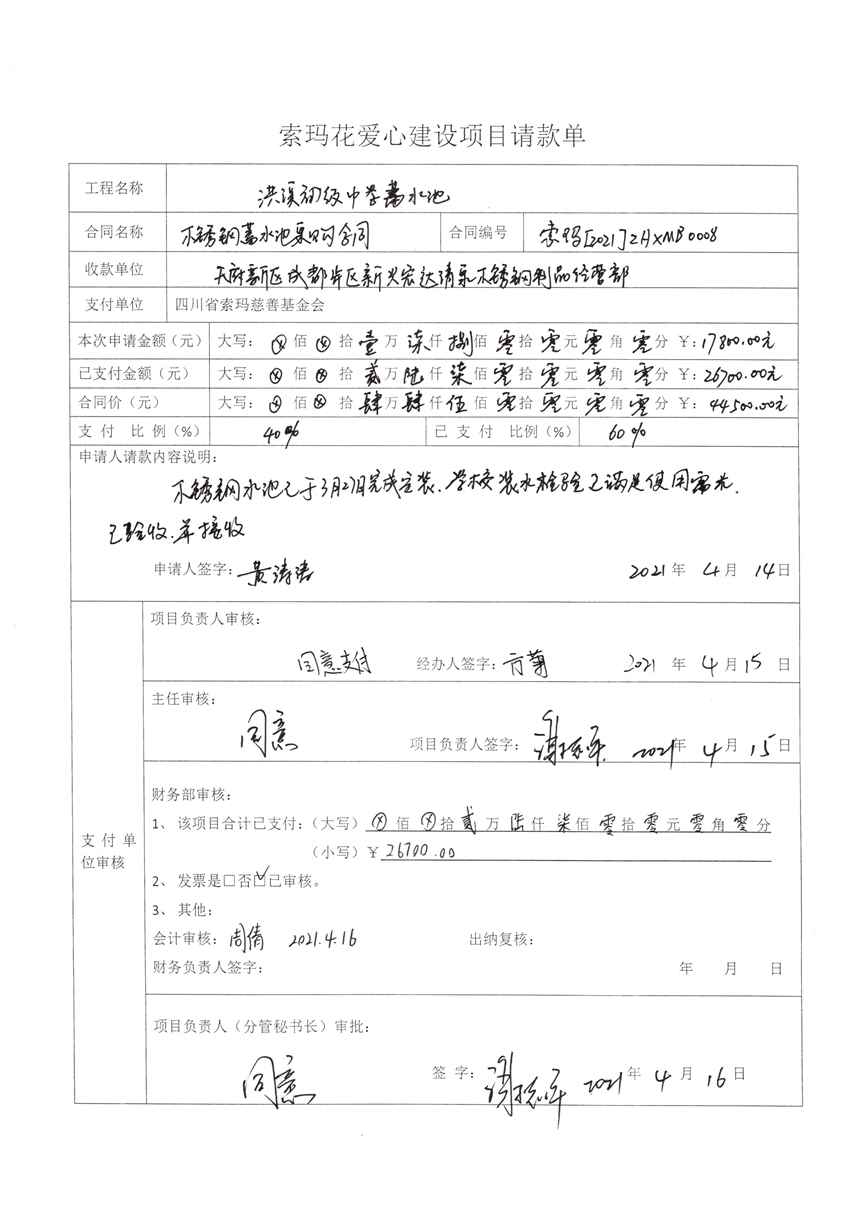 索玛花爱心建设项目请款单
工程名称 洪溪初级中学蓄水池
合同名称 不锈钢蓄水池采购合同 合同编号 索玛[2021]ZHXMB0008
收款单位 天府新区成都片区新兴宏达清泉不锈钢制品经营部
支付单位 四川省索玛慈善基金会
本次申请金额（元） 大写： ⊗ 佰 ⊗ 拾 壹 万 柒 仟 捌 佰 零 拾 零 元 零 角 零 分 ￥：17800.00元
已支付金额（元） 大写： ⊗ 佰 ⊗ 拾 贰 万 陆 仟 柒 佰 零 拾 零 元 零 角 零 分 ￥：26700.00元
合同价（元） 大写： ⊗ 佰 ⊗ 拾 肆 万 肆 仟 伍 佰 零 拾 零 元 零 角 零 分 ￥：44500.00元
支付 比 例（%） 40% 已 支 付 比例（%） 60%
申请人请款内容说明：
不锈钢水池已于3月27日完成安装，学校装水检验已满足使用需求，
已验收并接收
申请人签字： 黄涛涛 2021 年 4 月 14 日
支付单位审核
项目负责人审核：
同意支付 经办人签字： 2021 年 4 月 15 日
主任审核：
同意 项目负责人签字： 2021 年 4 月 15 日
财务部审核：
1、 该项目合计已支付：（大写） ⊗ 佰 ⊗ 拾 贰 万 陆 仟 柒 佰 零 拾 零 元 零 角 零 分
（小写）￥ 26700.00
2、 发票是□否☑已审核。
3、 其他：
会计审核： 周倩 2021.4.16 出纳复核：
财务负责人签字： 年 月 日
项目负责人（分管秘书长）审批：
同意 签 字： 2021 年 4 月 16 日